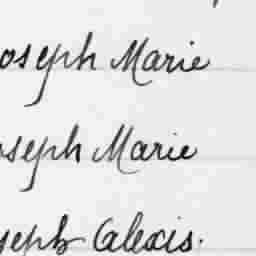 oseph Marie
oseph Marie
seph Alexis.